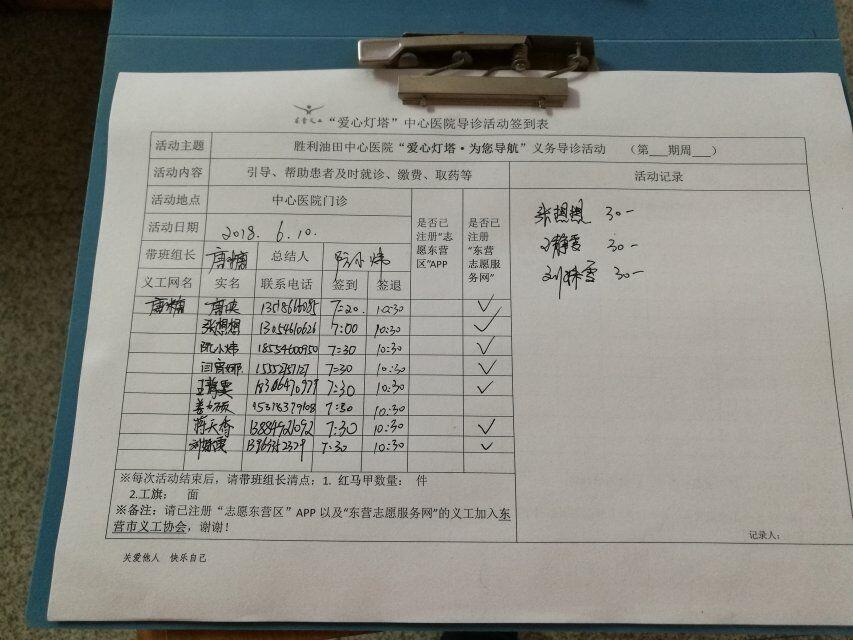 “爱心灯塔”中心医院导诊活动签到表
活动主题 胜利油田中心医院“爱心灯塔·为您导航”义务导诊活动 (第___期周___)
活动内容 引导、帮助患者及时就诊、缴费、取药等 活动记录
活动地点 中心医院门诊
活动日期 2018. 6.10.
是否已注册“志愿东营区”APP
是否已注册“东营志愿服务网”
带班组长 总结人
义工网名 实名 联系电话 签到 签退
7:20 10:30 ✓
张想想 13054610626 7:00 10:30 ✓
阮小炜 18554600950 7:30 10:30 ✓
7:30 10:30 ✓
7:30 10:30 ✓
7:30 10:30
蒋天香 13884921092 7:30 10:30 ✓
7:30 10:30 ✓
张想想 30-
30-
30-
※每次活动结束后，请带班组长清点：1. 红马甲数量： 件
2.工旗： 面
※备注：请已注册“志愿东营区”APP 以及“东营志愿服务网”的义工加入东
营市义工协会，谢谢！
记录人：
关爱他人 快乐自己